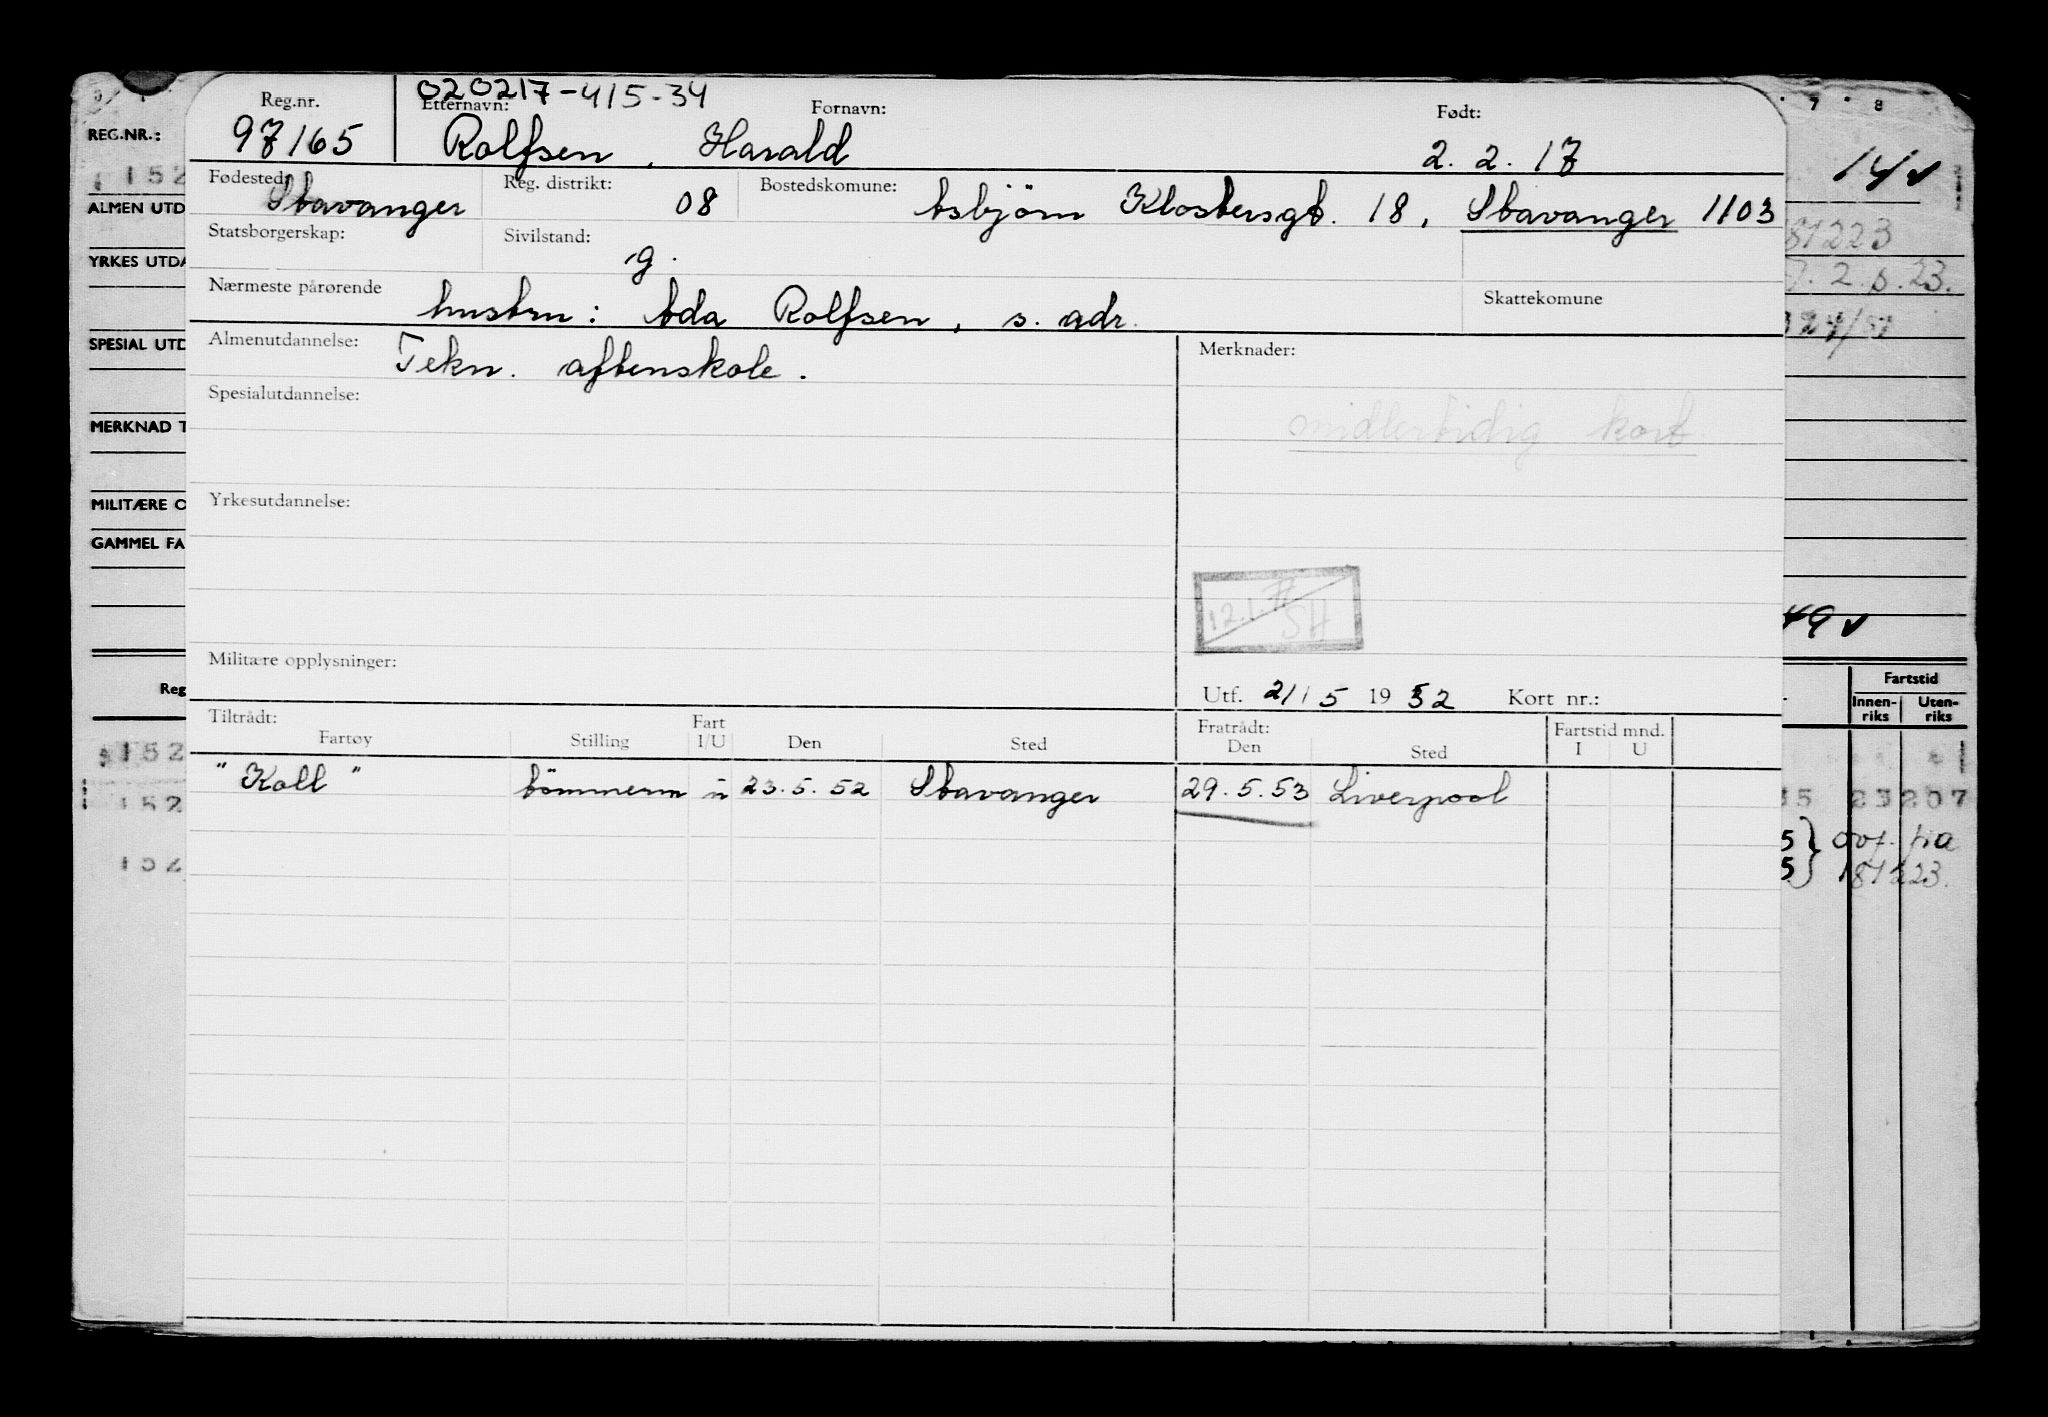 020217-415-34
Reg.nr. Etternavn: Fornavn: Født:
97165 Rolfsen, Harald 2. 2. 17
Fødested: Stavanger Reg. distrikt: 08 Bostedskomune: Asbjörn Klostersgt. 18, Stavanger 1103
Statsborgerskap: Sivilstand: g.
Nærmeste pårørende hustru: Ada Rolfsen, s. adr. Skattekomune
Almenutdannelse: Tekn. aftenskole. Merknader:
Spesialutdannelse: midlertidig kort
Yrkesutdannelse:
12.1. SH
Militære opplysninger:
Utf. 21/5 1952 Kort nr.:
Tiltrådt: Fart Fratrådt: Fartstid mnd.
Fartøy Stilling I/U Den Sted Den Sted I U
"Koll" tömmerm u 23.5.52 Stavanger 29.5.53 Liverpool
REG.NR.:
152
ALMEN UTD
YRKES UTDA
SPESIAL UTD
MERKNAD T
MILITÆRE O
GAMMEL FA
Reg
152
152
152
7 8
14 v
81223
2.6.23.
49 v
Fartstid
Innen-riks Uten-riks
35 23 207
5} ovf. fra
5} 181223.